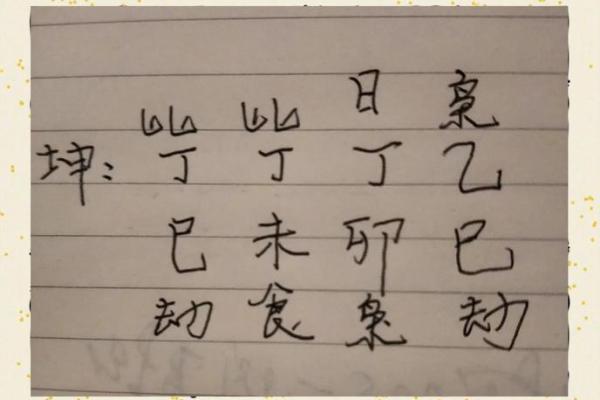 比 比 日 枭
坤: 丁 丁 丁 乙
巳 未 卯 巳
劫 食 枭 劫